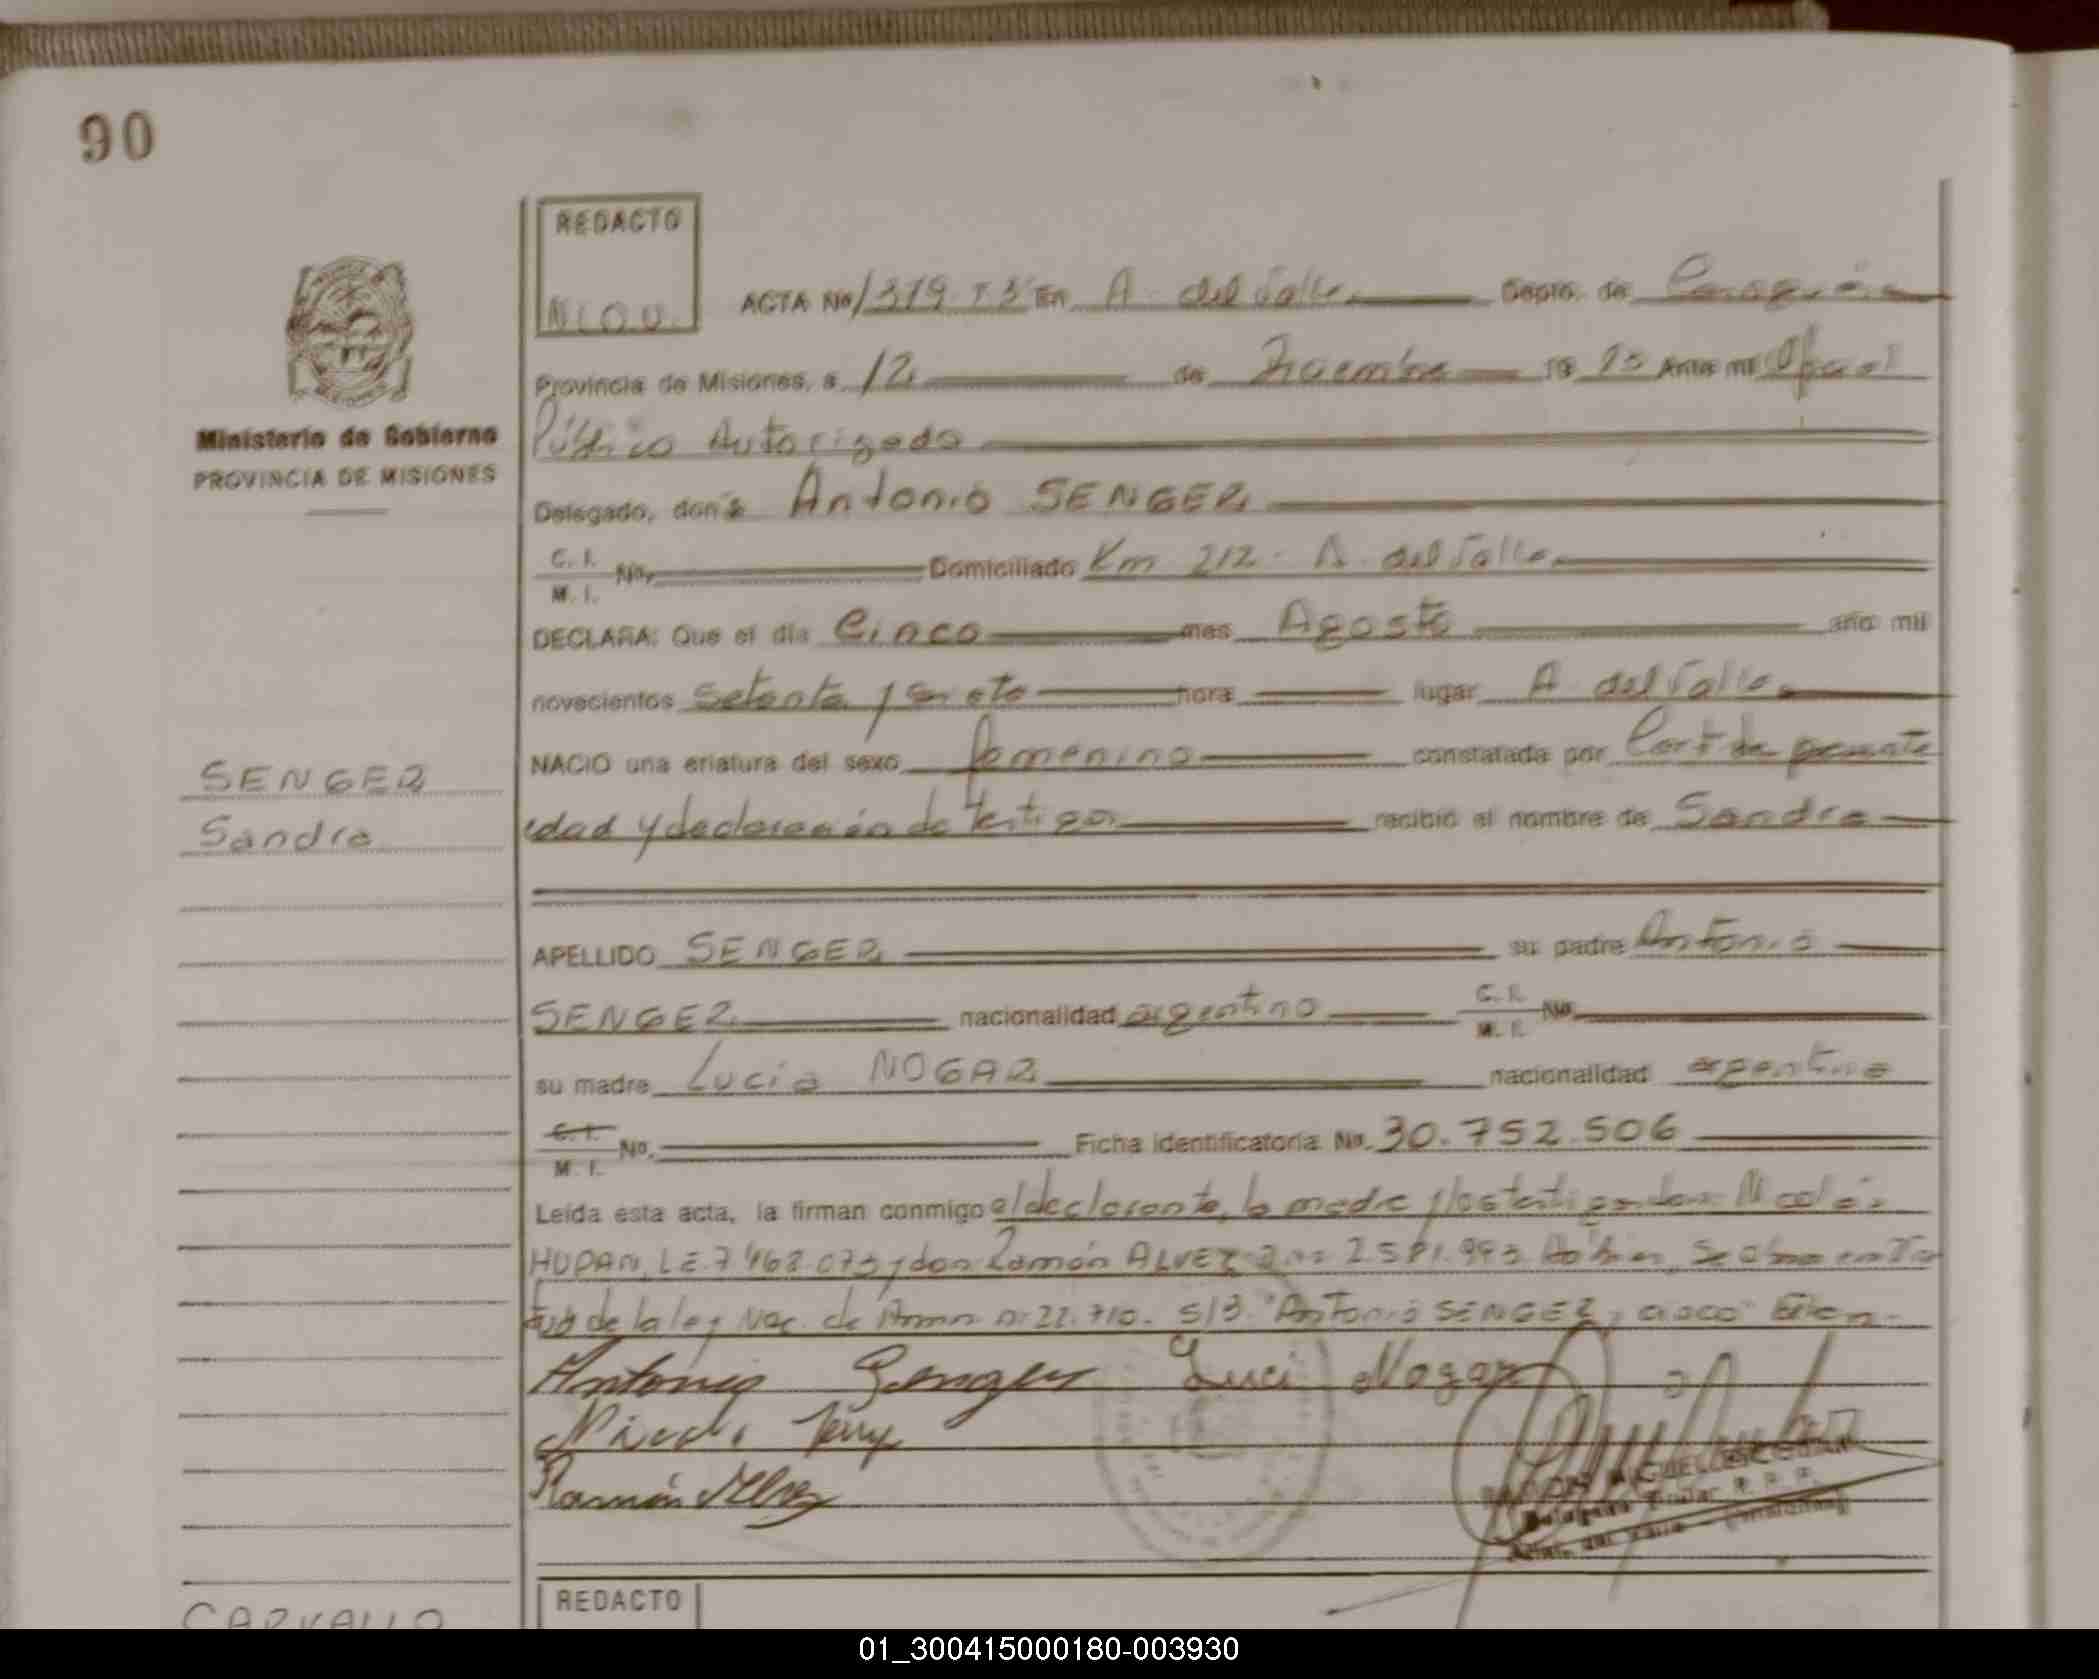 90
REDACTO
N L O U
ACTA No 1319 T 3 En A. del Valle Depto. de
Provincia de Misiones, a 12 de Diciembre 19 Ante mi Oficial
Público Autorizado
Ministerio de Gobierno
PROVINCIA DE MISIONES
Delegado, don Antonio SENGER
C. I.
M. I. No. Domiciliado Km 212 - A. del Valle
DECLARA: Que el día Cinco mes Agosto año mil
novecientos setenta y siete hora lugar A. del Valle
NACIO una criatura del sexo femenino constatada por Cert de presunta
SENGER
Sandra
edad y declaración de testigos recibió el nombre de Sandra
APELLIDO SENGER su padre Antonio
SENGER nacionalidad argentino C. I.
M. I. No.
su madre Lucia NOGAR nacionalidad argentina
C. I.
M. I. No. Ficha identificatoria No. 30.752.506
Leída esta acta, la firman conmigo el declarante, la madre y los testigos don
HUPAN, L.E. 7.468.073 y don Ramón ALVEZ 2.581.993
de la ley Nac. de n° 22.710. S/B "Antonio SENGER, cinco"
Antonio Senger Luci Nogar
Ramón Alvez
REDACTO
CARVALLO
01_300415000180-003930